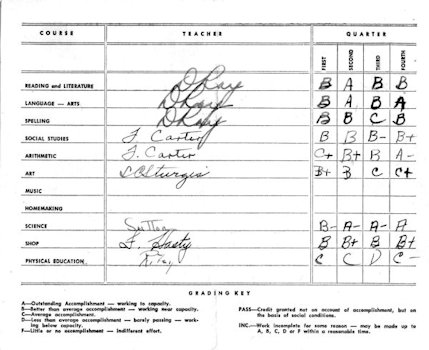 COURSE TEACHER QUARTER
FIRST SECOND THIRD FOURTH
READING and LITERATURE D Ray B A B B
LANGUAGE — ARTS D Ray B A B A
SPELLING D Ray B B C B
SOCIAL STUDIES F. Carter B B B- B+
ARITHMETIC F. Carter C+ B+ B A-
ART Sturgis B+ B C C+
MUSIC
HOMEMAKING
SCIENCE Sutton B- A- A- A
SHOP F. Hasty B B+ B B+
PHYSICAL EDUCATION C C D C-
GRADING KEY
A—Outstanding Accomplishment — working to capacity.
B—Better than average accomplishment — working near capacity.
C—Average accomplishment.
D—Less than average accomplishment — barely passing — work-
ing below capacity.
F—Little or no accomplishment — indifferent effort.
PASS—Credit granted not on account of accomplishment, but on
the basis of social conditions.
INC.—Work incomplete for some reason — may be made up to
A, B, C, D or F within a reasonable time.